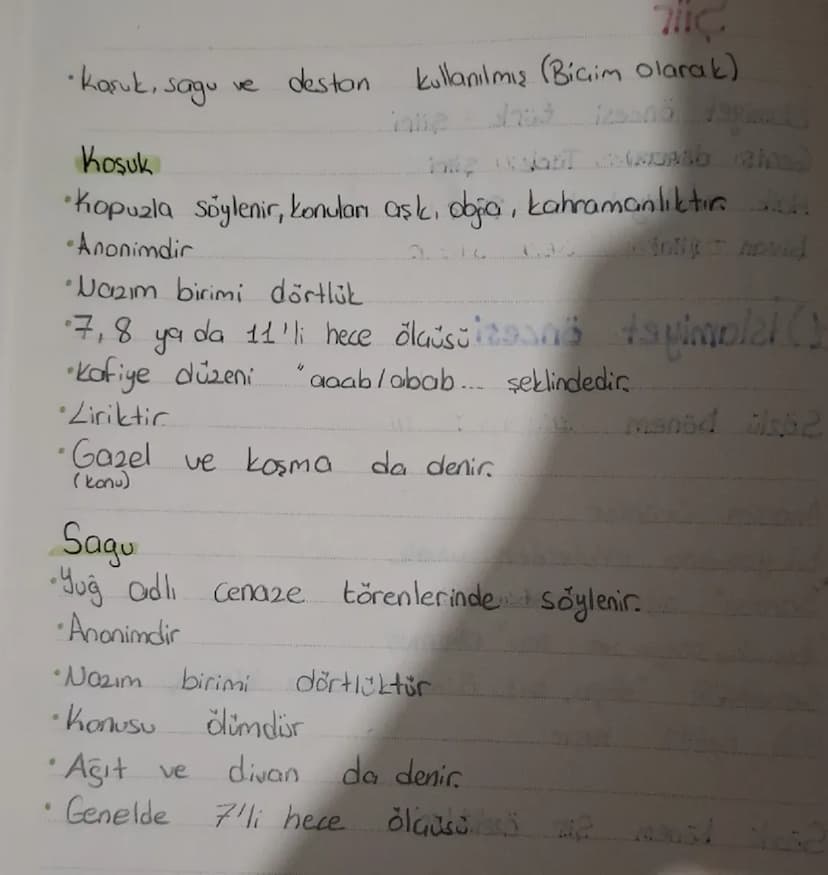 • Koşuk, sagu ve destan kullanılmış (Biçim olarak)
Koşuk
• Kopuzla söylenir, konuları aşk, doğa, kahramanlıktır.
• Anonimdir
• Nazım birimi dörtlük
• 7, 8 ya da 11'li hece ölçüsü
• Kafiye düzeni "aaab/abab... şeklindedir.
• Liriktir
• Gazel ve koşma da denir.
(konu)
Sagu
• Yuğ adlı cenaze törenlerinde söylenir.
• Anonimdir
• Nazım birimi dörtlüktür
• Konusu ölümdür
• Ağıt ve divan da denir.
• Genelde 7'li hece ölçüsü